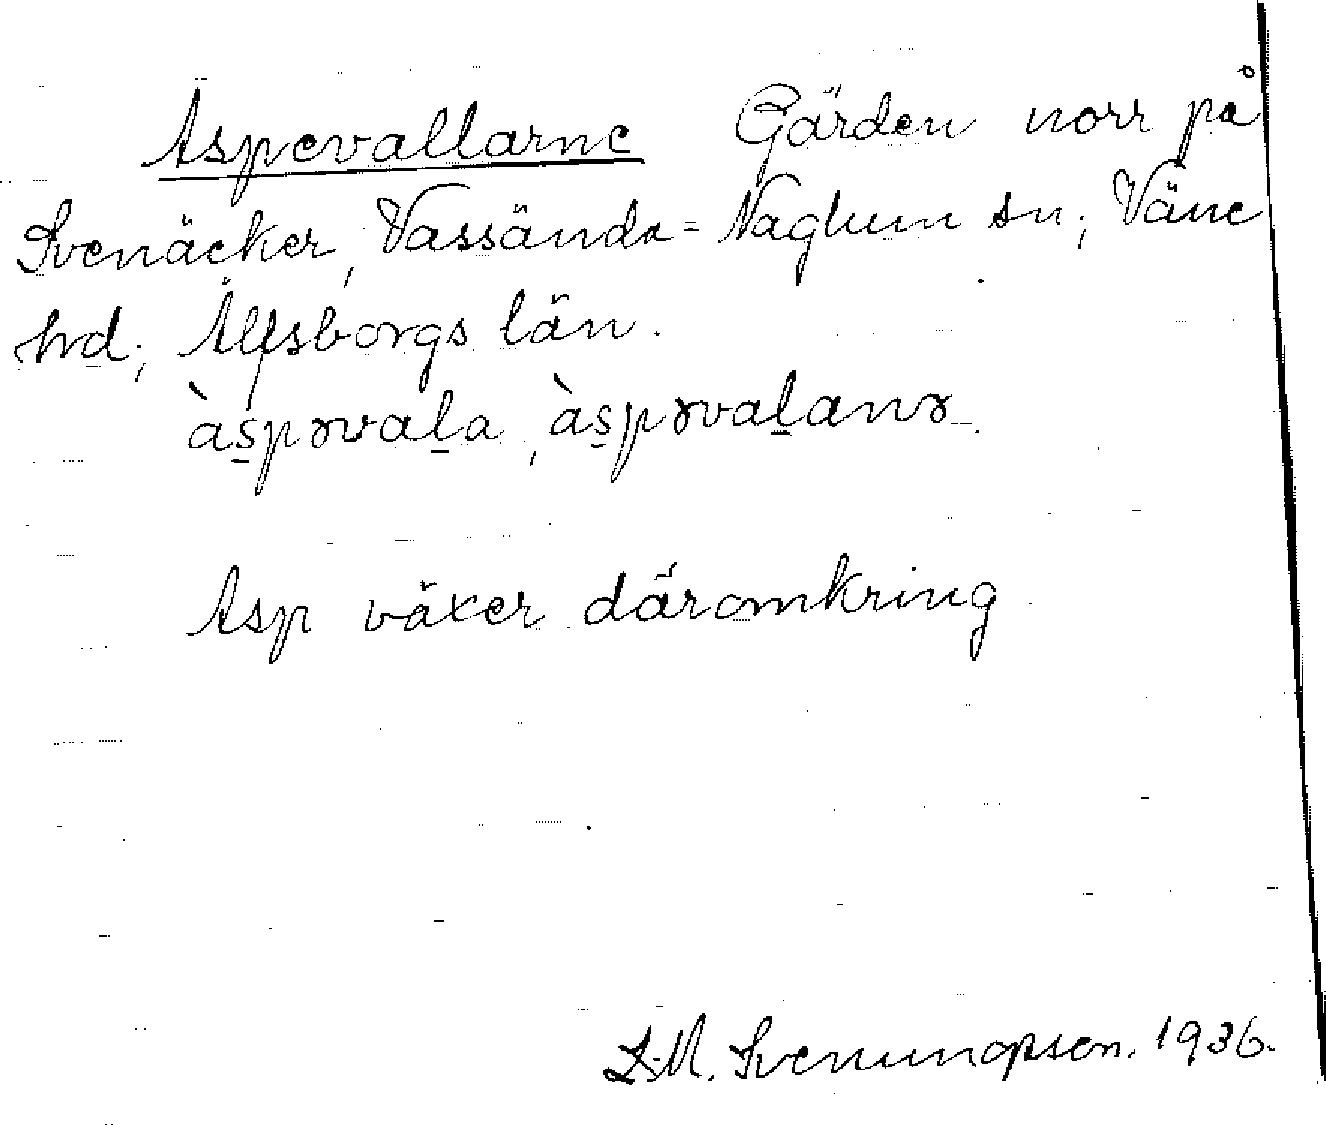 Aspevallarne Gärden norr på
Svenäcker, Vassända=Naglum sn; Väne
hd; Älfsborgs län.
àspɤvaḻa, àspɤvaḻanɤ.
Asp växer däromkring
L.M. Svenungsson. 1936.